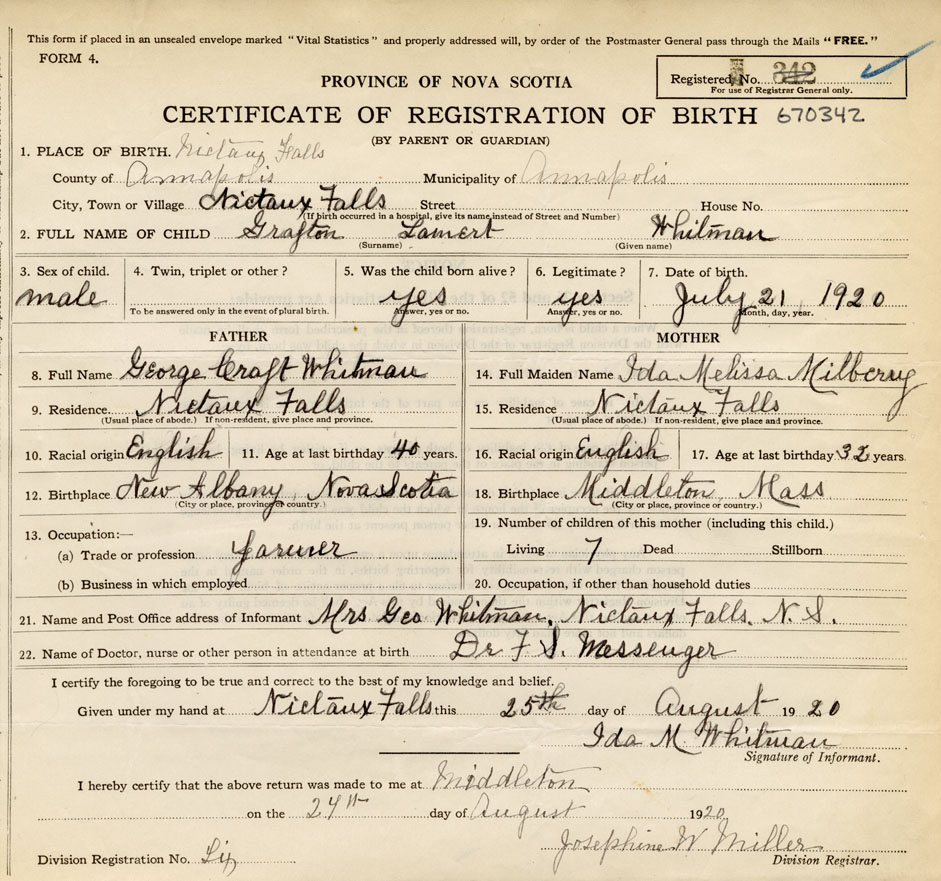 This form if placed in an unsealed envelope marked "Vital Statistics" and properly addressed will, by order of the Postmaster General pass through the Mails "FREE."
FORM 4.
Registered No. 342
For use of Registrar General only.
PROVINCE OF NOVA SCOTIA
CERTIFICATE OF REGISTRATION OF BIRTH 670342
(BY PARENT OR GUARDIAN)
1. PLACE OF BIRTH. Nictaux Falls
County of Annapolis Municipality of Annapolis
City, Town or Village Nictaux Falls Street House No.
(If birth occurred in a hospital, give its name instead of Street and Number)
2. FULL NAME OF CHILD Grafton Lamert Whitman
(Surname) (Given name)
3. Sex of child. 4. Twin, triplet or other? 5. Was the child born alive? 6. Legitimate? 7. Date of birth.
male yes yes July 21 1920
To be answered only in the event of plural birth. Answer, yes or no. Answer, yes or no. Month, day, year.
FATHER MOTHER
8. Full Name George Craft Whitman 14. Full Maiden Name Ida Melissa Milberry
9. Residence. Nictaux Falls 15. Residence Nictaux Falls
(Usual place of abode.) If non-resident, give place and province. (Usual place of abode.) If non-resident, give place and province.
10. Racial origin English 11. Age at last birthday 40 years. 16. Racial origin English 17. Age at last birthday 32 years.
12. Birthplace New Albany, Nova Scotia 18. Birthplace Middleton, Mass
(City or place, province or country.) (City or place, province or country.)
13. Occupation:— 19. Number of children of this mother (including this child.)
(a) Trade or profession farmer Living 7 Dead Stillborn
(b) Business in which employed 20. Occupation, if other than household duties
21. Name and Post Office address of Informant Mrs Geo Whitman, Nictaux Falls. N. S.
22. Name of Doctor, nurse or other person in attendance at birth Dr F S. Messenger
I certify the foregoing to be true and correct to the best of my knowledge and belief.
Given under my hand at Nictaux Falls this 25th day of August 1920
Ida M. Whitman
Signature of Informant.
I hereby certify that the above return was made to me at Middleton
on the 24th day of August 1920
Josephine W Miller
Division Registration No. Division Registrar.